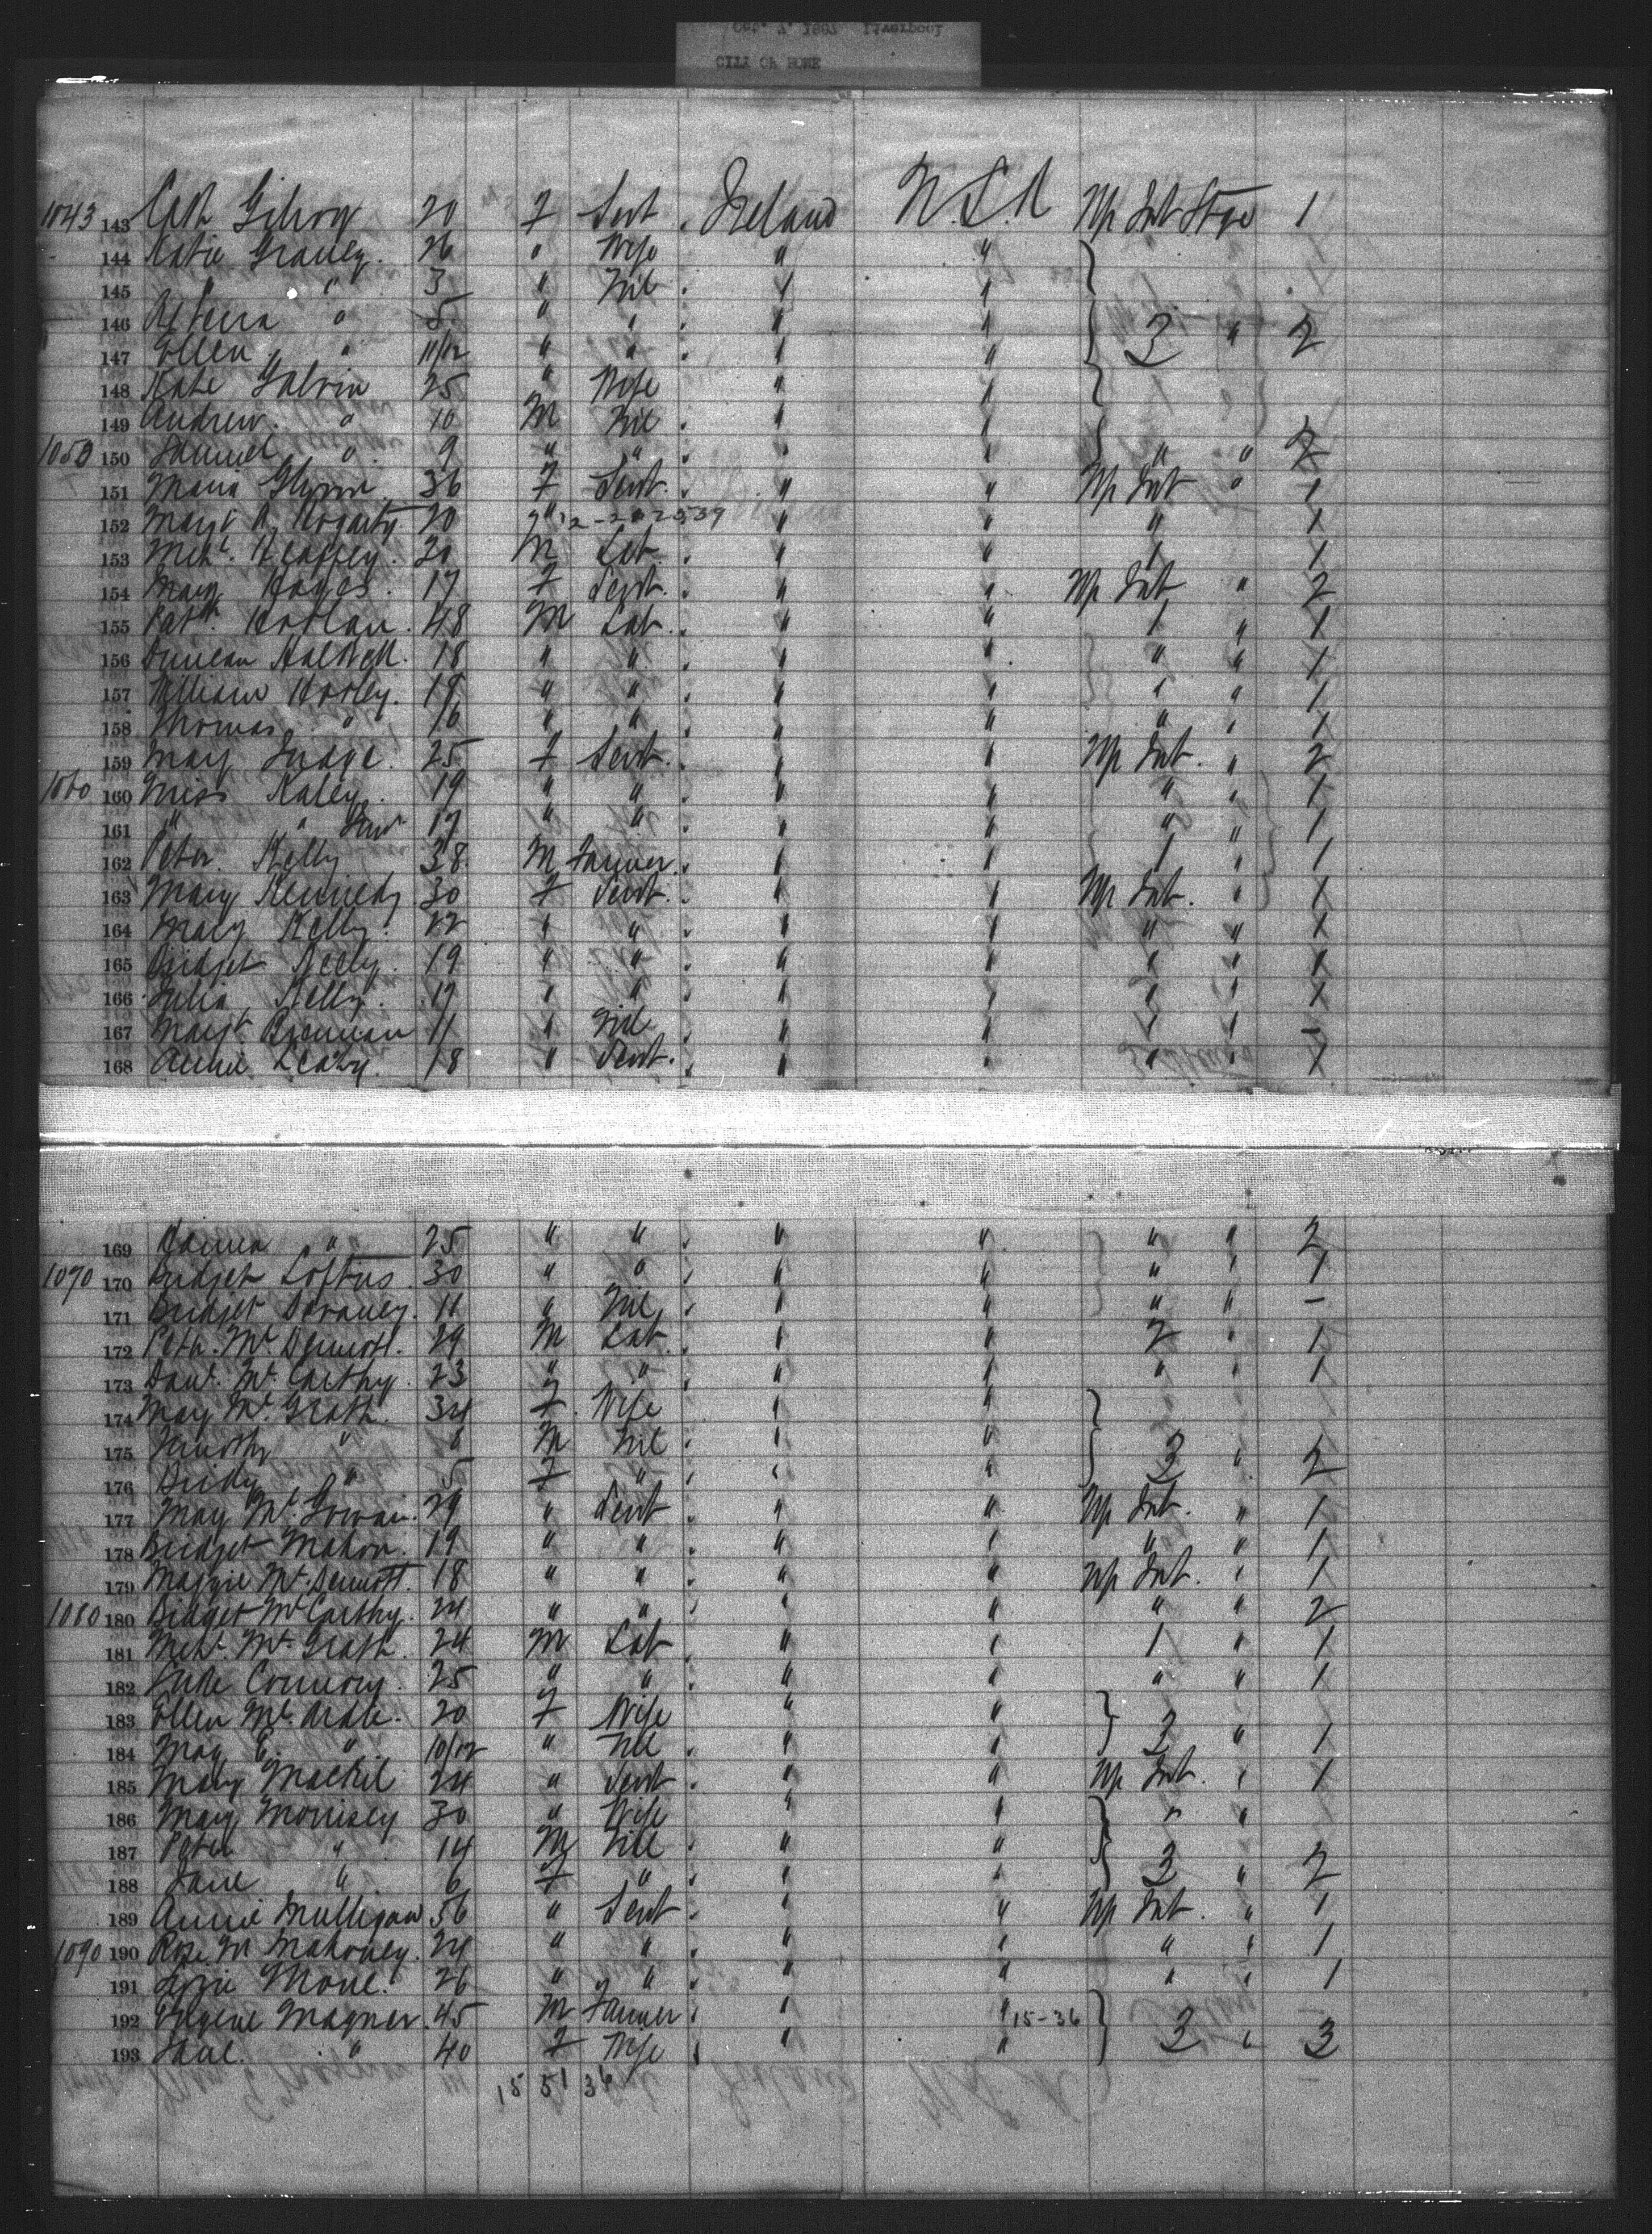 CITY OF ROME
Oct. 7. 1887 Liverpool
1043 143 Cath Gilroy 20 F Sevt. Ireland U.S.A Up Int Stge 1
144 Katie Graney. 26 " Wife " "
145 " " 3 " Nil " "
146 " 5 " " " " 3 " 2
147 Ellen " 11/12 " " " "
148 Kate Galvin 25 " Wife " "
149 Andrew " 10 M Nil " "
1050 150 Samuel " 9 " " " " " " 2
151 Maria Glynn 36 F Sevt. " " Up Int " 1
152 Margt A. Hogarty 20 " 12-202539 " " " 1
153 Mich. Heaffey 20 M Lab. " " 1 1
154 Mary Hayes 17 F Sevt. " " Up Int " 2
155 Patk. 48 M Lab. " " 1 " 1
156 Duncan 18 " " " " " " 1
157 William Horley. 18 " " " " " " 1
158 Thomas " 16 " " " " " " 1
159 Mary Judge. 25 F Sevt. " " Up Int. " 2
1060 160 Miss Kaley. 19 " " " " " " 1
161 " " Junr 17 " " " " " " 1
162 Peter Kelly 38 M Farmer. " " 1 " 1
163 Mary Kennedy 30 F Sevt. " " Up Int. " 1
164 Mary Kelly. 22 " " " " " " 1
165 Bridget Kelly. 19 " " " " " " 1
166 Julia Kelly. 17 " " " " " " 1
167 Margt. Brennan 11 " Nil " " " " -
168 Annie Leary. 18 " Sevt. " " " " 1
169 Hanna " 25 " " " " " " 2
1070 170 Bridget Loftus. 30 " " " " " " 1
171 Bridget Devaney. 11 " Nil " " " " -
172 Petr. McDermott. 29 M Lab. " " 2 " 1
173 Danl. McCarthy. 23 " " " " " " 1
174 Mary McGrath. 34 F Wife " "
175 Timothy " M Nil " " 3 " 2
176 Biddy " 5 F " " "
177 Mary McGowan. 29 " Sevt " " Up Int. " 1
178 Bridget Mahon. 19 " " " " " " 1
179 Maggie McDermott. 18 " " " " Up Int. " 1
1080 180 Bidget McCarthy. 24 " " " " " " 2
181 Michl. McGrath. 24 M Lab " " 1 " 1
182 Luke Conroy. 25 " " " " " " 1
183 Ellen McArdle. 20 F Wife " "
184 Mary E. " 10/12 " Nil " " 3 " 1
185 Mary Mackil 24 " Sevt " " Up Int. " 1
186 Mary Morrisey 30 " Wife " " " "
187 Peter " 14 M Nil " "
188 Jane " 6 F " " " 3 " 2
189 Annie Mulligan 56 " Sevt " " Up Int. " 1
1090 190 Rose M Mahoney. 24 " " " " " " 1
191 Lizzie Mone. 26 " " " " " " 1
192 Eugene Magner. 45 M Farmer " " 15-36
193 Jane. " 40 F Wife " " 3 " 3
15 51 36